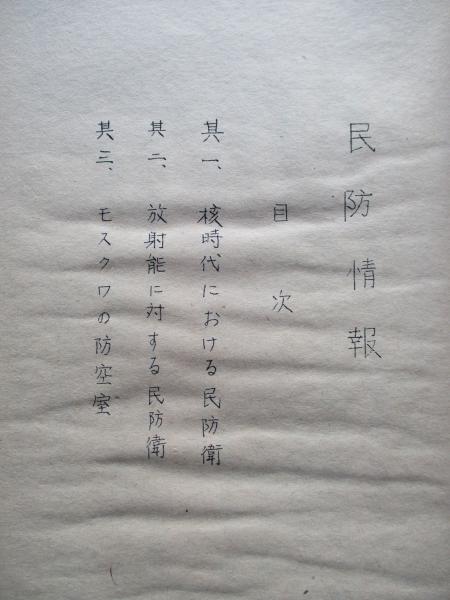 民防情報
目次
其一、核時代における民防衛
其二、放射能に対する民防衛
其三、モスクワの防空室